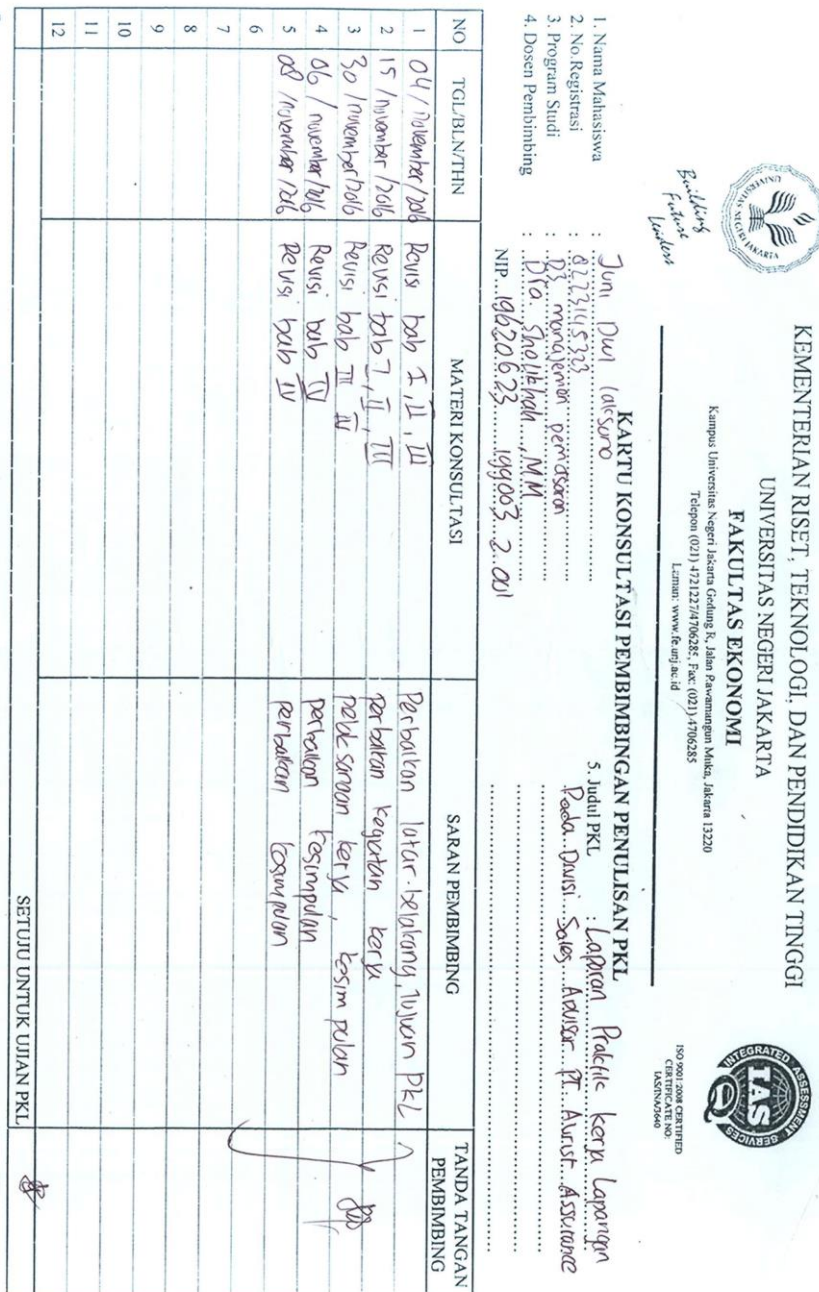 KEMENTERIAN RISET, TEKNOLOGI, DAN PENDIDIKAN TINGGI
UNIVERSITAS NEGERI JAKARTA
FAKULTAS EKONOMI
Kampus Universitas Negeri Jakarta Gedung R, Jalan Rawamangun Muka, Jakarta 13220
Telepon (021) 4721227/4706285, Fax: (021) 4706285
Laman: www.fe.unj.ac.id
UNIVERSITAS NEGERI JAKARTA
Building
Future
Leaders
INTEGRATED ASSESSMENT SERVICES
IAS
ISO 9001:2008 CERTIFIED
CERTIFICATE NO:
IAS/INA/3640
KARTU KONSULTASI PEMBIMBINGAN PENULISAN PKL
1. Nama Mahasiswa : Juni Dwi laksono
2. No.Registrasi : 8223145323
3. Program Studi : D3 manajemen pemasaran
4. Dosen Pembimbing : Dra. Sholikhah, MM
NIP. 19620623 199003 2 001
5. Judul PKL : Laporan Praktik kerja Lapangan
Pada Divisi Sales Advisor PT. Aurist Assurance
NO TGL/BLN/THN MATERI KONSULTASI SARAN PEMBIMBING TANDA TANGAN PEMBIMBING
1 04/november/2016 Revisi bab I, II, III Perbaikan latar-belakang, tujuan PKL
2 15/november/2016 Revisi bab I, II, III perbaikan kegiatan kerja
3 30/november/2016 Revisi bab III IV pelaksanaan kerja, kesimpulan
4 06/november/2016 Revisi bab IV perbaikan kesimpulan
5 08/november/2016 Revisi bab IV perbaikan kesimpulan
6
7
8
9
10
11
12
SETUJU UNTUK UJIAN PKL